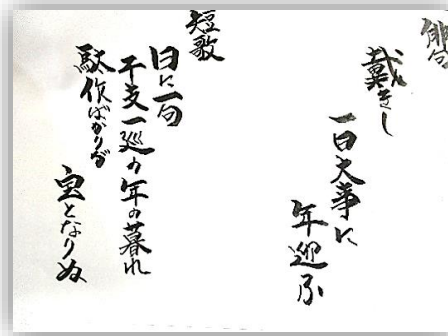 俳句
戴きし
一日大事に
年迎ふ
短歌
日に一句
干支一巡の年の暮れ
駄作ばかりが
宝となりぬ